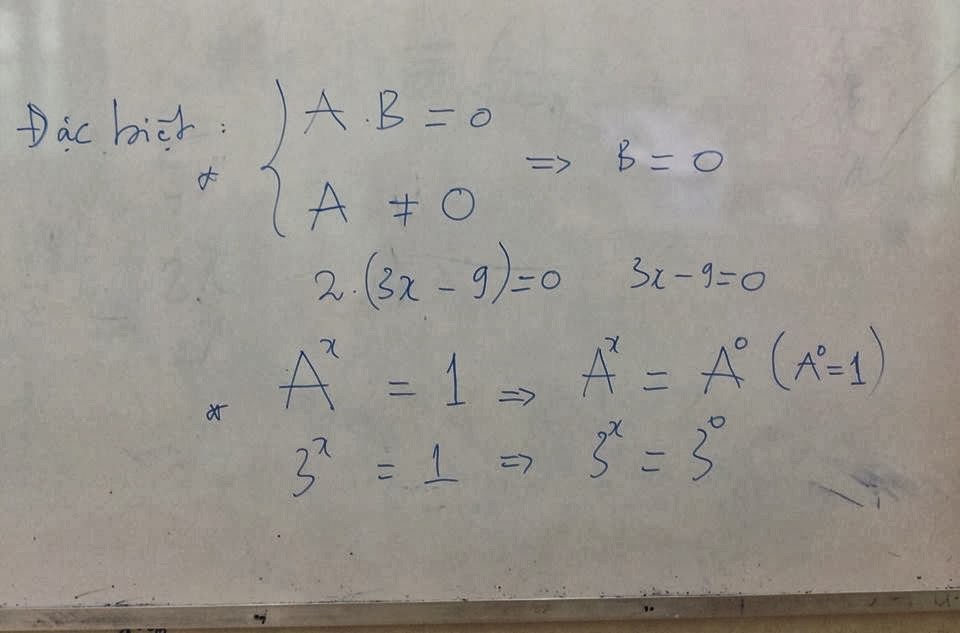 Đặc biệt :
* { A . B = 0
A ≠ 0 => B = 0
2.(3x - 9)=0 3x-9=0
* Aˣ = 1 => Aˣ = A⁰ (A⁰=1)
3ˣ = 1 => 3ˣ = 3⁰